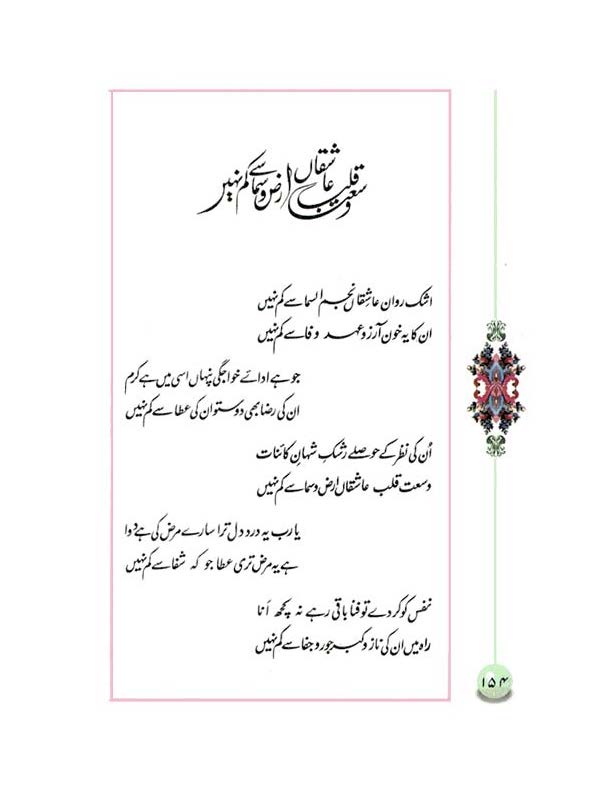 وسعت قلب عاشقاں ارض و سما سے کم نہیں
اشک روان عاشقاں نجم السما سے کم نہیں
ان کا یہ خون آرزو عہد وفا سے کم نہیں
جو ہے ادائے خواجگی پنہاں اسی میں ہے کرم
ان کی رضا بھی دوستو ان کی عطا سے کم نہیں
اُن کی نظر کے حوصلے رشکِ شہانِ کائنات
وسعت قلب عاشقاں ارض و سما سے کم نہیں
یارب یہ درد دل ترا سارے مرض کی ہے دوا
ہے یہ مرض تری عطا جو کہ شفا سے کم نہیں
نفس کو کردے تو فنا باقی رہے نہ کچھ اَنا
راہ میں ان کی ناز و کبر جور و جفا سے کم نہیں
۱۵۴